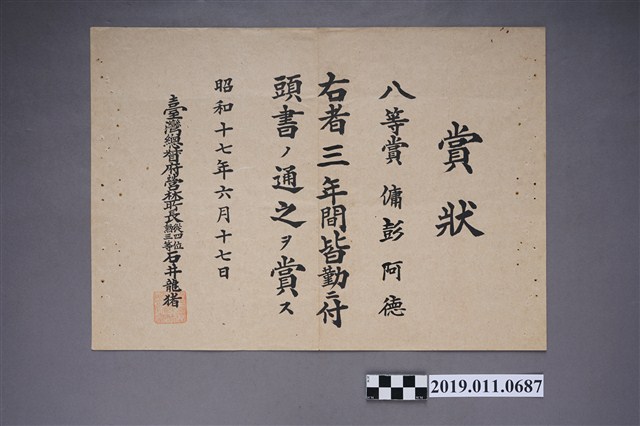 賞狀
八等賞 傭 彭阿德
右者三年間皆勤ニ付
頭書ノ通之ヲ賞ス
昭和十七年六月十七日
臺灣總督府營林所長從四位勲三等石井龍猪
2019.011.0687